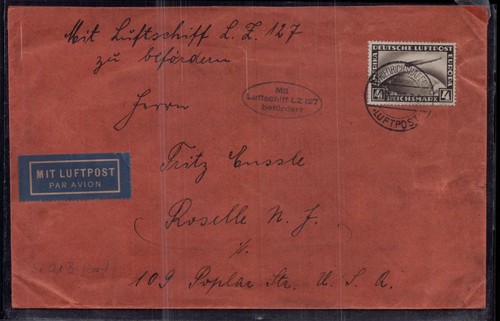 Mit Luftschiff L. Z. 127
zu befördern
DEUTSCHE LUFTPOST
EUROPA
4 4
REICHSMARK
FRIEDRICHSHAFEN
LUFTPOST
Mit
Luftschiff LZ 127
befördert
Herrn
MIT LUFTPOST
PAR AVION
Fritz Eussle
Roselle N. J.
109 Poplar Str. U. S. A.